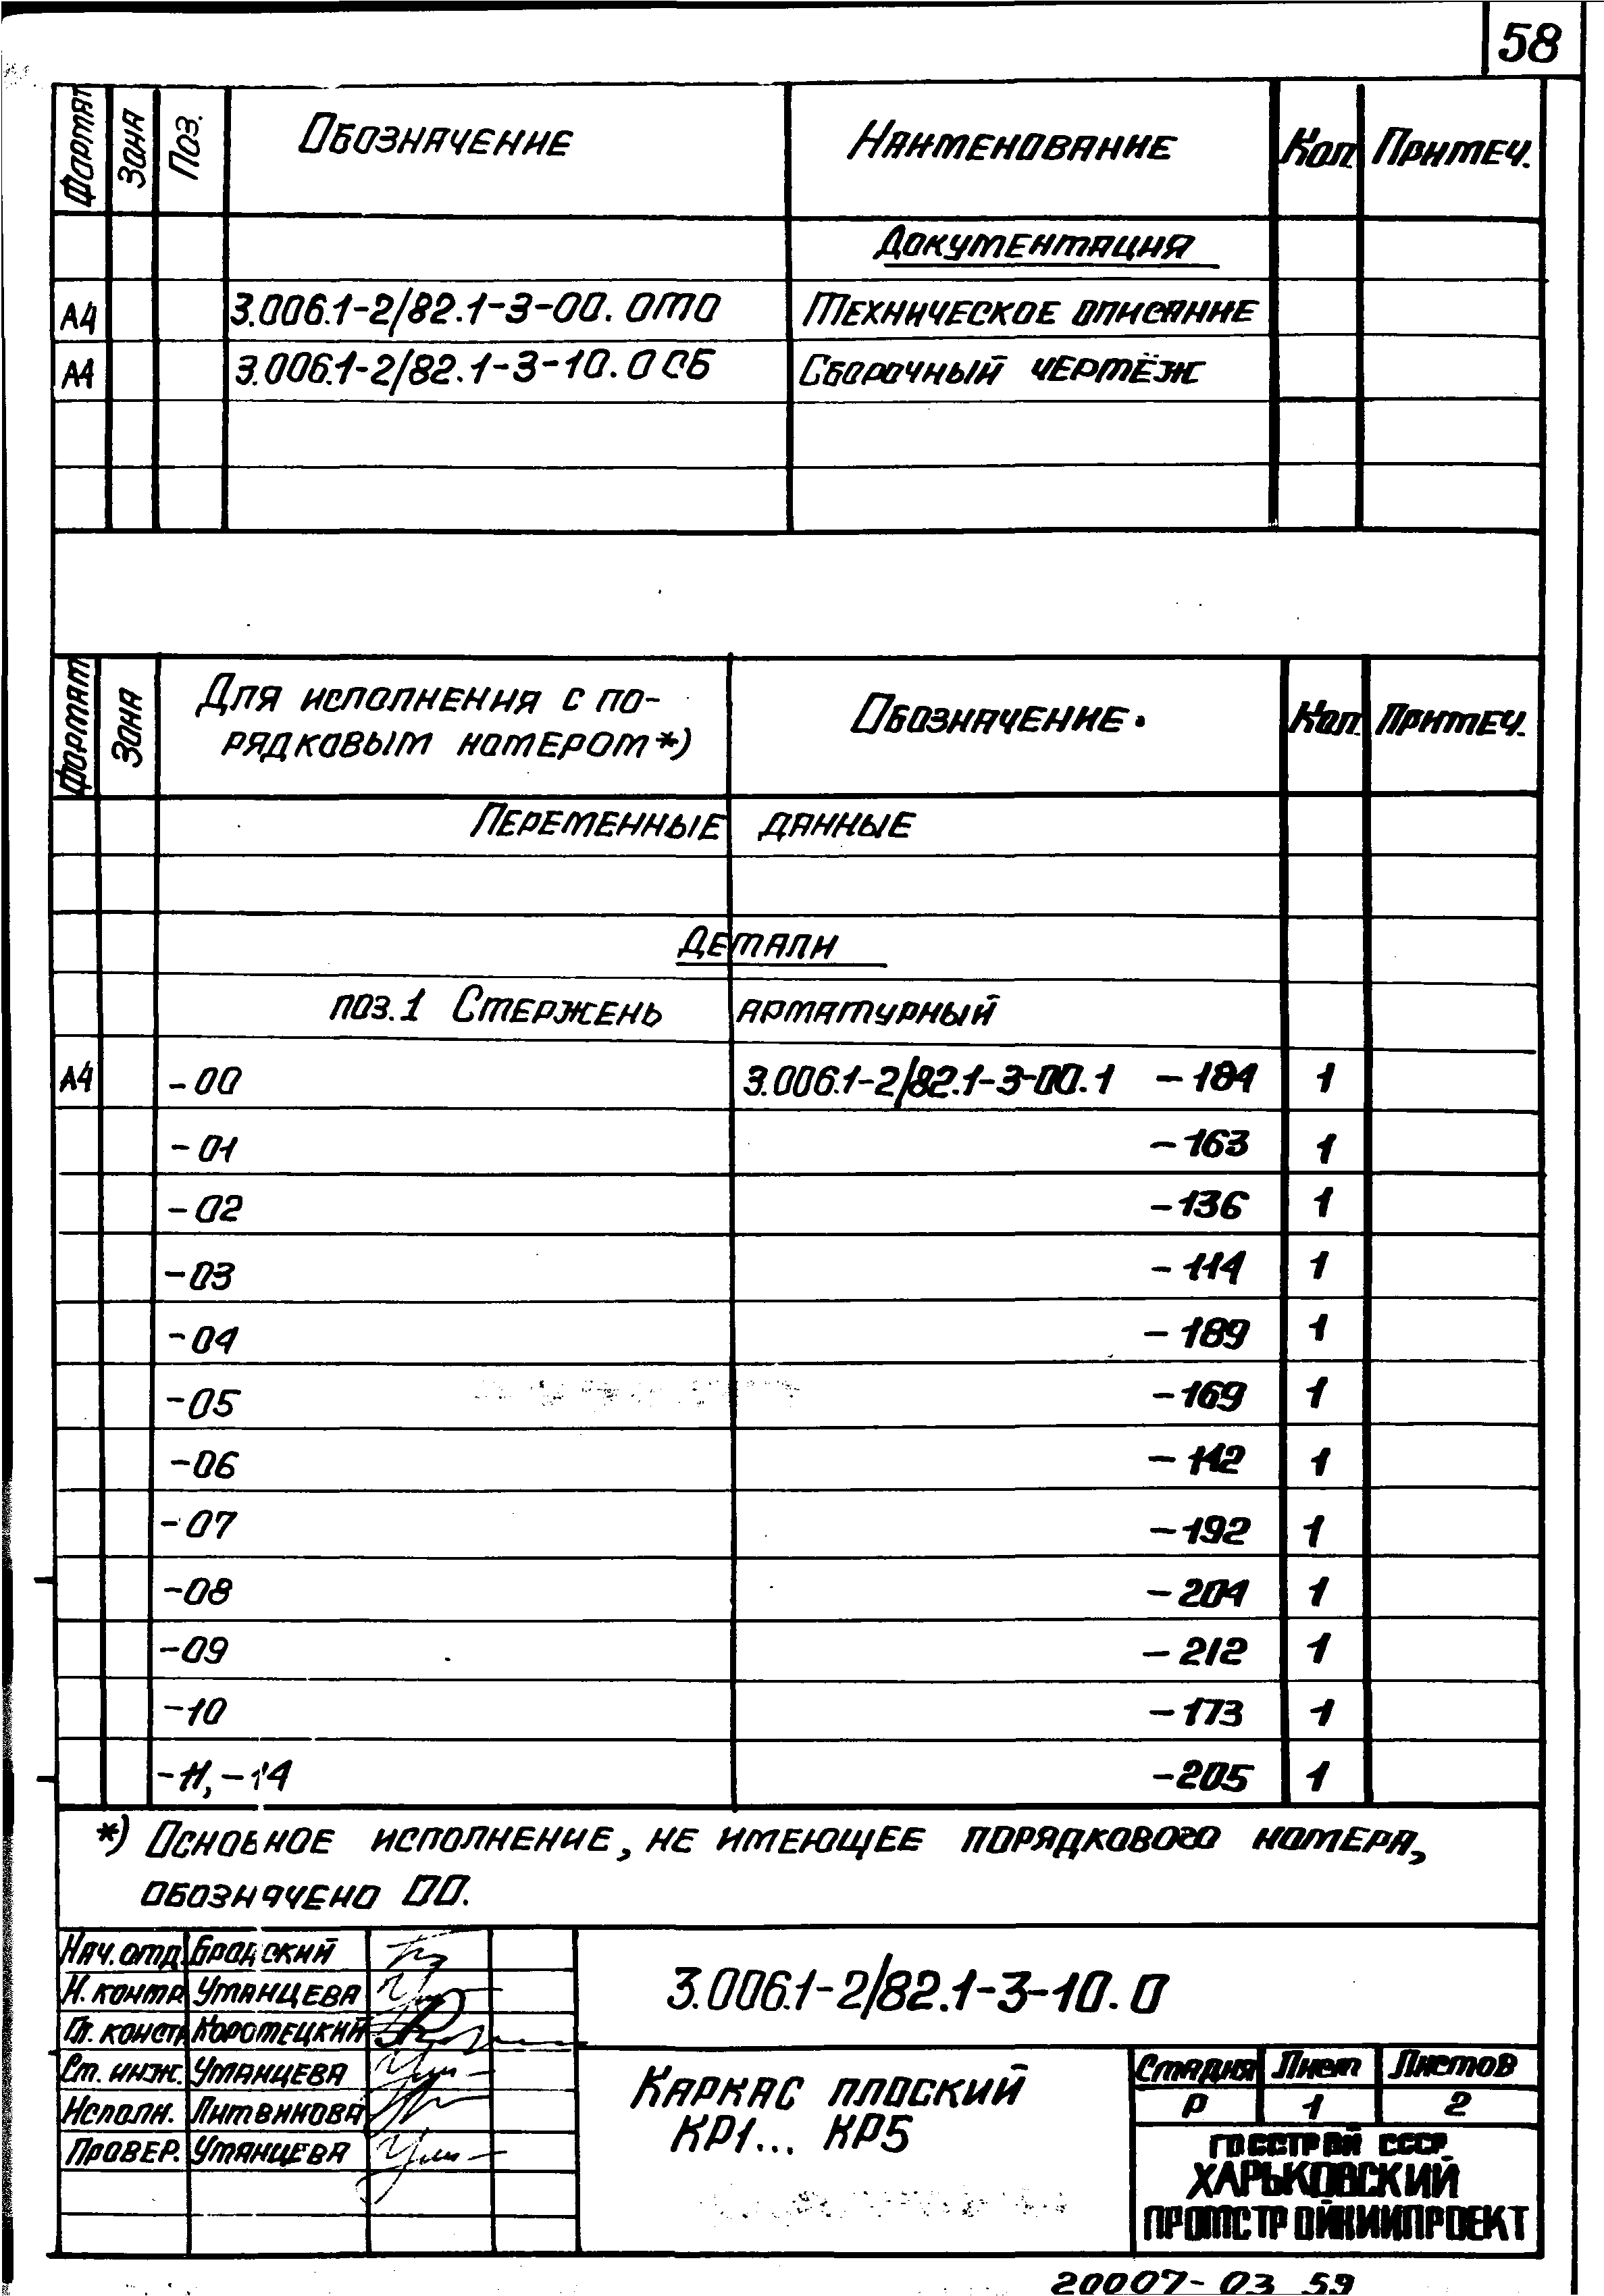 58
Формат Зона Поз. Обозначение Наименование Кол. Примеч.
Документация
А4 3.006.1-2/82.1-3-00.0ТО Техническое описание
А4 3.006.1-2/82.1-3-10.0СБ Сборочный чертёж
Формат Зона Для исполнения с по- Обозначение Кол. Примеч.
рядковым номером*)
Переменные данные
Детали
поз.1 Стержень арматурный
А4 -00 3.006.1-2/82.1-3-00.1 -184 1
-01 -163 1
-02 -136 1
-03 -114 1
-04 -189 1
-05 -169 1
-06 -142 1
-07 -192 1
-08 -204 1
-09 -212 1
-10 -173 1
-11,-14 -205 1
*) Основное исполнение, не имеющее порядкового номера,
обозначено 00.
Нач.отд. Бродский
Н.контр Уманцева
Гл.констр. Коротецкий
Ст.инж. Уманцева
Исполн. Литвинова
Провер. Уманцева
3.006.1-2/82.1-3-10.0
Каркас плоский
КР1... КР5
Стадия Лист Листов
Р 1 2
ГОССТРОЙ СССР
ХАРЬКОВСКИЙ
ПРОМСТРОЙНИИПРОЕКТ
20007-03 59